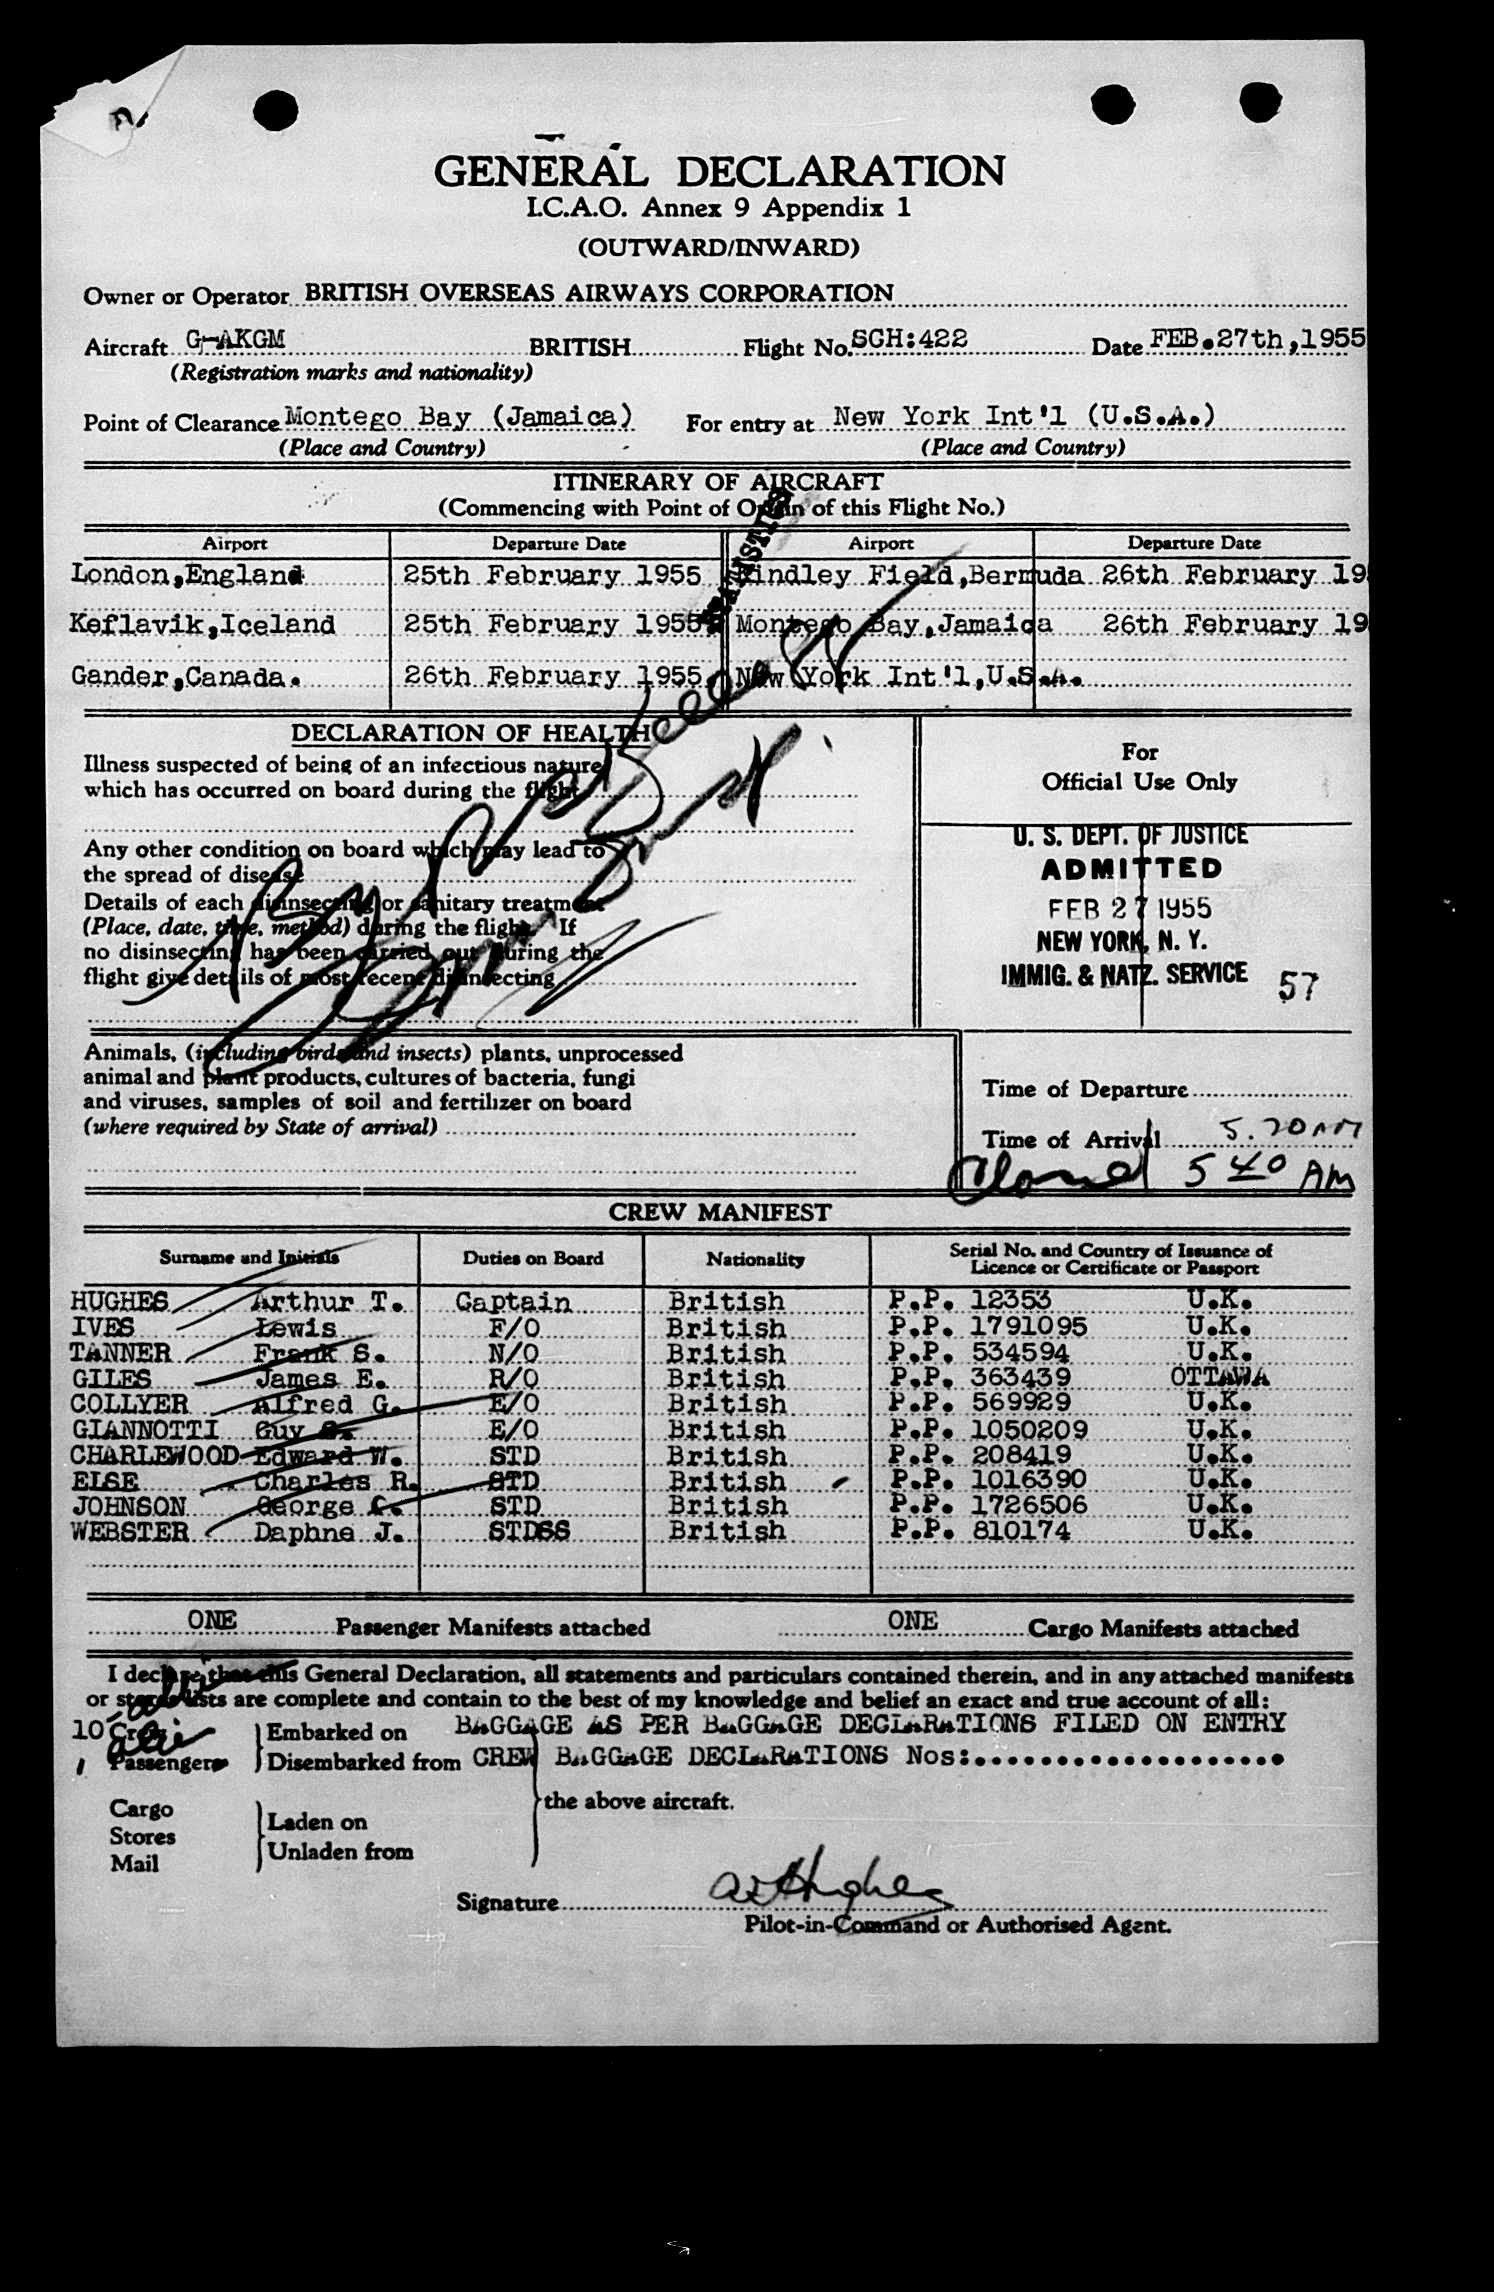 GENERAL DECLARATION
I.C.A.O. Annex 9 Appendix 1
(OUTWARD/INWARD)
Owner or Operator BRITISH OVERSEAS AIRWAYS CORPORATION
Aircraft G-AKGM BRITISH Flight No. SCH:422 Date FEB.27th,1955
(Registration marks and nationality)
Point of Clearance Montego Bay (Jamaica) For entry at New York Int'l (U.S.A.)
(Place and Country) (Place and Country)
ITINERARY OF AIRCRAFT
(Commencing with Point of Origin of this Flight No.)
Airport Departure Date Airport Departure Date
London,England 25th February 1955 Kindley Field,Bermuda 26th February 19
Keflavik,Iceland 25th February 1955 Montego Bay,Jamaica 26th February 19
Gander,Canada. 26th February 1955. New York Int'l,U.S.A.
STATISTICS
DECLARATION OF HEALTH
Illness suspected of being of an infectious nature
which has occurred on board during the flight
Any other condition on board which may lead to
the spread of disease
Details of each disinsecting or sanitary treatment
(Place, date, time, method) during the flight. If
no disinsecting has been carried out during the
flight give details of most recent disinsecting
For
Official Use Only
U. S. DEPT. OF JUSTICE
ADMITTED
FEB 27 1955
NEW YORK, N. Y.
IMMIG. & NATZ. SERVICE 57
Animals, (including birds and insects) plants, unprocessed
animal and plant products, cultures of bacteria, fungi
and viruses, samples of soil and fertilizer on board
(where required by State of arrival)
Time of Departure
Time of Arrival 5.20 AM
5 40 AM
CREW MANIFEST
Surname and Initials Duties on Board Nationality Serial No. and Country of Issuance of
Licence or Certificate or Passport
HUGHES Arthur T. Captain British P.P. 12353 U.K.
IVES Lewis F/O British P.P. 1791095 U.K.
TANNER Frank S. N/O British P.P. 534594 U.K.
GILES James E. R/O British P.P. 363439 OTTAWA
COLLYER Alfred G. E/O British P.P. 569929 U.K.
GIANNOTTI Guy E/O British P.P. 1050209 U.K.
CHARLEWOOD Edward W. STD British P.P. 208419 U.K.
ELSE Charles R. STD British P.P. 1016390 U.K.
JOHNSON George C. STD British P.P. 1726506 U.K.
WEBSTER Daphne J. STDSS British P.P. 810174 U.K.
ONE Passenger Manifests attached ONE Cargo Manifests attached
I declare that this General Declaration, all statements and particulars contained therein, and in any attached manifests
or stores lists are complete and contain to the best of my knowledge and belief an exact and true account of all:
10 Crew Embarked on BAGGAGE AS PER BAGGAGE DECLARATIONS FILED ON ENTRY
1 Passengers Disembarked from CREW BAGGAGE DECLARATIONS Nos:....................
the above aircraft.
Cargo
Stores
Mail
Laden on
Unladen from
Signature A T Hughes
Pilot-in-Command or Authorised Agent.